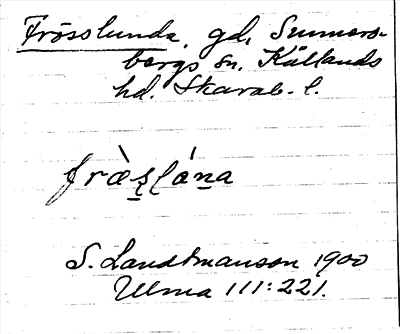 Frösslunda, gd, Sunners-
bergs sn, Kållands
hd. Skarab. l.
fræ̀s̱lánа
S. Landtmanson 1900
Ulma 111:221.